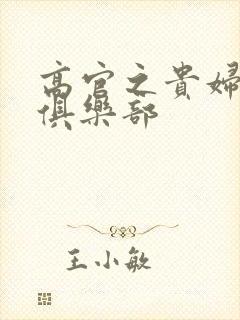 高官之貴婦
俱樂部
王小敏